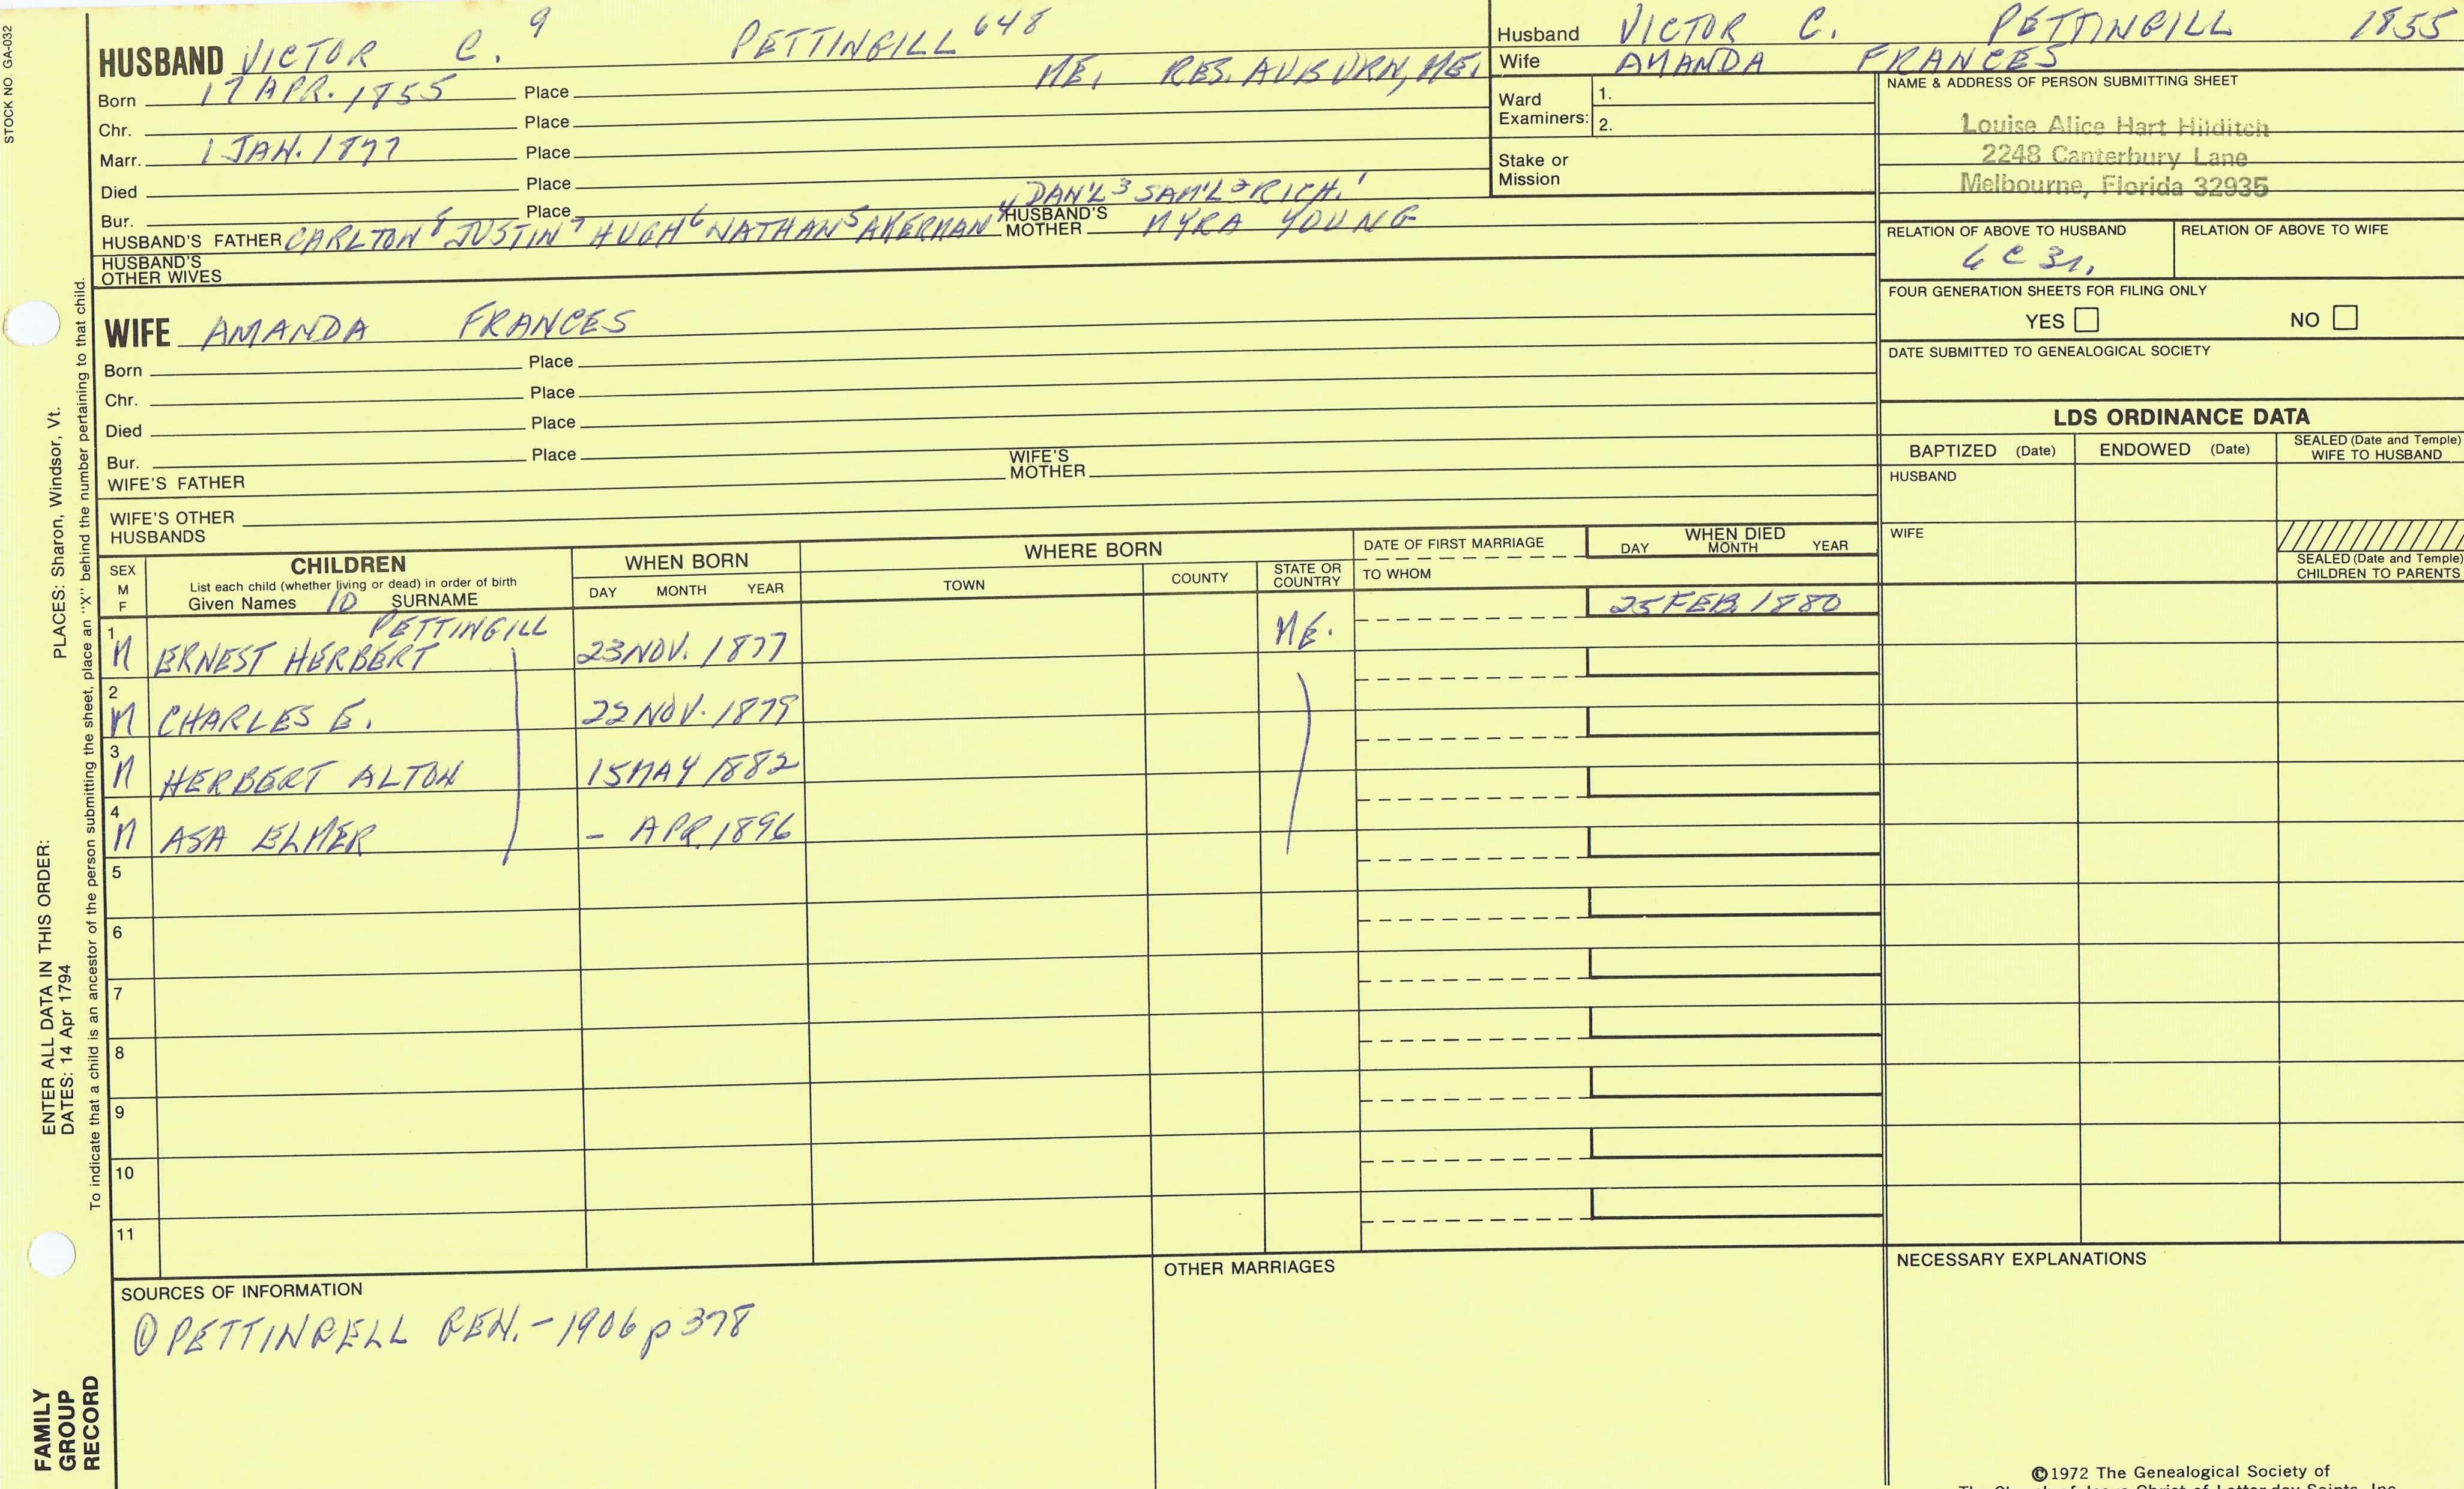 STOCK NO. GA-032
HUSBAND VICTOR C. 9 PETTINGILL 648
Born 17 APR. 1855 Place ME, RES. AUBURN, ME,
Chr. Place
Marr. 1 JAN. 1877 Place
Died Place
Bur. Place
DAN'L 3 SAM'L 2 RICH. 1
HUSBAND'S FATHER CARLTON 8 JUSTIN 7 HUGH 6 NATHAN 5 AKERMAN 4 HUSBAND'S MOTHER MYRA YOUNG
HUSBAND'S OTHER WIVES
WIFE AMANDA FRANCES
Born Place
Chr. Place
Died Place
Bur. Place
WIFE'S FATHER WIFE'S MOTHER
WIFE'S OTHER HUSBANDS
Husband VICTOR C. PETTINGILL 1855
Wife AMANDA FRANCES
Ward Examiners: 1.
2.
Stake or Mission
NAME & ADDRESS OF PERSON SUBMITTING SHEET
Louise Alice Hart Hilditch
2248 Canterbury Lane
Melbourne, Florida 32935
RELATION OF ABOVE TO HUSBAND RELATION OF ABOVE TO WIFE
6 C 3r,
FOUR GENERATION SHEETS FOR FILING ONLY
YES NO
DATE SUBMITTED TO GENEALOGICAL SOCIETY
LDS ORDINANCE DATA
BAPTIZED (Date) ENDOWED (Date) SEALED (Date and Temple) WIFE TO HUSBAND
HUSBAND
WIFE
SEALED (Date and Temple) CHILDREN TO PARENTS
SEX M F
CHILDREN
List each child (whether living or dead) in order of birth
Given Names 10 SURNAME
WHEN BORN
DAY MONTH YEAR
WHERE BORN
TOWN COUNTY STATE OR COUNTRY
DATE OF FIRST MARRIAGE
TO WHOM
WHEN DIED
DAY MONTH YEAR
1 M ERNEST HERBERT PETTINGILL 23 NOV. 1877 ME. 25 FEB. 1880
2 M CHARLES E. 22 NOV. 1879
3 M HERBERT ALTON 15 MAY 1882
4 M ASA ELMER – APR. 1896
5
6
7
8
9
10
11
SOURCES OF INFORMATION
① PETTINGELL GEN. – 1906 p 378
OTHER MARRIAGES
NECESSARY EXPLANATIONS
©1972 The Genealogical Society of
The Church of Jesus Christ of Latter-day Saints, Inc.
PLACES: Sharon, Windsor, Vt.
ENTER ALL DATA IN THIS ORDER:
DATES: 14 Apr 1794
To indicate that a child is an ancestor of the person submitting the sheet, place an "X" behind the number pertaining to that child.
FAMILY
GROUP
RECORD